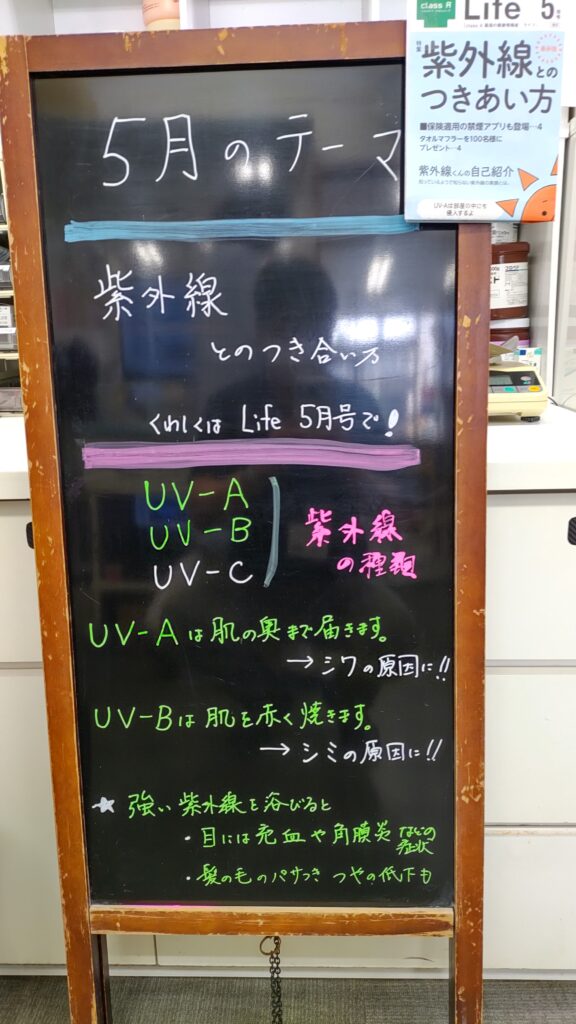 5月のテーマ
紫外線
とのつき合い方
くわしくは Life 5月号で!
UV-A
UV-B
UV-C
紫外線
の種類
UV-Aは肌の奥まで届きます。
→シワの原因に!!
UV-Bは肌を赤く焼きます。
→シミの原因に!!
☆強い紫外線を浴びると
・目には充血や角膜炎などの症状
・髪の毛のパサつき つやの低下も
class A
Life 5
特集
紫外線との
つきあい方
■保険適用の禁煙アプリも登場…4
タオルマフラーを100名様に
プレゼント…4
紫外線くんの自己紹介
知っているようで知らない紫外線の素顔とは。
UV-Aは部屋の中にも
侵入するよ